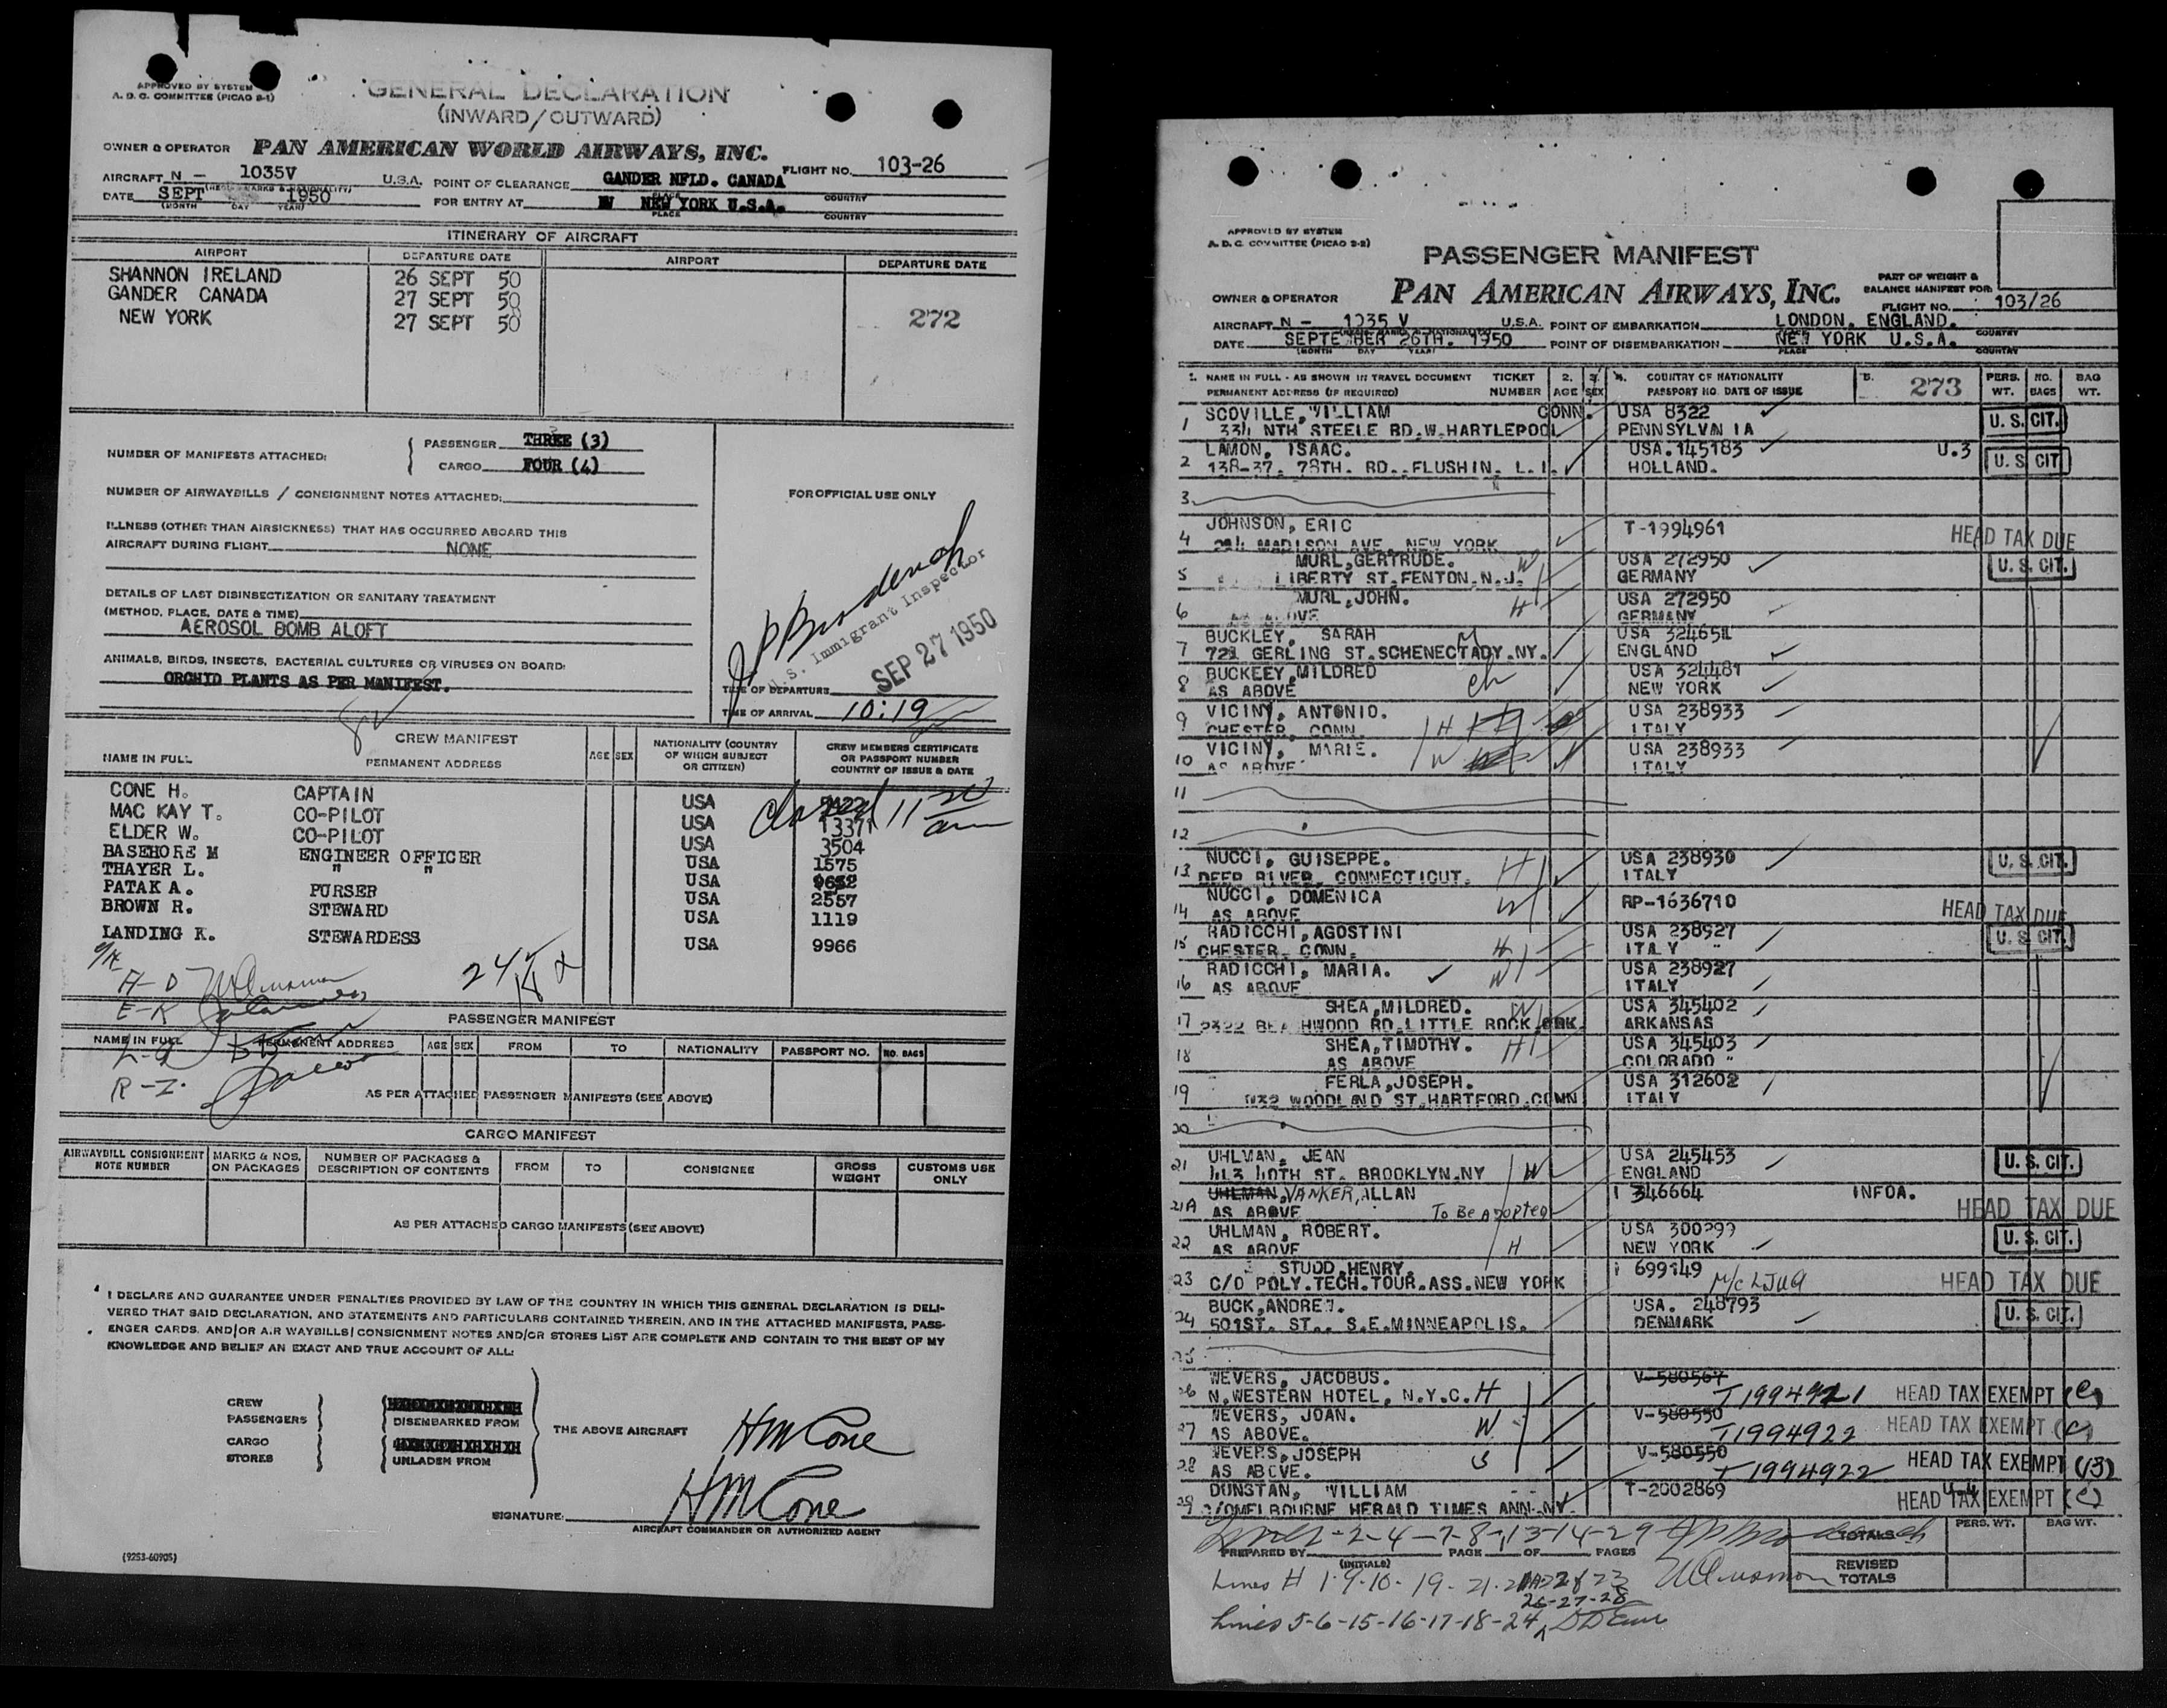 APPROVED BY SYSTEM
A. D. C. COMMITTEE (PICAO 2-1)
GENERAL DECLARATION
(INWARD/OUTWARD)
OWNER & OPERATOR PAN AMERICAN WORLD AIRWAYS, INC.
FLIGHT NO. 103-26
AIRCRAFT N - 1035V U.S.A. POINT OF CLEARANCE GANDER NFLD. CANADA
DATE SEPT 1950 FOR ENTRY AT NEW YORK U.S.A.
(MONTH DAY YEAR) PLACE COUNTRY
ITINERARY OF AIRCRAFT
AIRPORT DEPARTURE DATE AIRPORT DEPARTURE DATE
SHANNON IRELAND 26 SEPT 50
GANDER CANADA 27 SEPT 50
NEW YORK 27 SEPT 50 272
NUMBER OF MANIFESTS ATTACHED:
PASSENGER THREE (3)
CARGO FOUR (4)
NUMBER OF AIRWAYBILLS / CONSIGNMENT NOTES ATTACHED:
FOR OFFICIAL USE ONLY
ILLNESS (OTHER THAN AIRSICKNESS) THAT HAS OCCURRED ABOARD THIS
AIRCRAFT DURING FLIGHT NONE
DETAILS OF LAST DISINSECTIZATION OR SANITARY TREATMENT
(METHOD, PLACE, DATE & TIME)
AEROSOL BOMB ALOFT
U.S. Immigrant Inspector
SEP 27 1950
ANIMALS, BIRDS, INSECTS, BACTERIAL CULTURES OR VIRUSES ON BOARD:
ORCHID PLANTS AS PER MANIFEST.
TIME OF DEPARTURE
TIME OF ARRIVAL 10:19
CREW MANIFEST
NAME IN FULL PERMANENT ADDRESS AGE SEX
NATIONALITY (COUNTRY OF WHICH SUBJECT OR CITIZEN)
CREW MEMBERS CERTIFICATE OR PASSPORT NUMBER COUNTRY OF ISSUE & DATE
CONE H. CAPTAIN USA
MAC KAY T. CO-PILOT USA 13371
ELDER W. CO-PILOT USA 3504
BASEHORE M ENGINEER OFFICER USA 1575
THAYER L. " " USA
PATAK A. PURSER USA 2557
BROWN R. STEWARD USA 1119
LANDING K. STEWARDESS USA 9966
A-D
E-K
R-Z
PASSENGER MANIFEST
NAME IN FULL PERMANENT ADDRESS AGE SEX FROM TO NATIONALITY PASSPORT NO. NO. BAGS
AS PER ATTACHED PASSENGER MANIFESTS (SEE ABOVE)
CARGO MANIFEST
AIRWAYBILL CONSIGNMENT NOTE NUMBER MARKS & NOS. ON PACKAGES NUMBER OF PACKAGES & DESCRIPTION OF CONTENTS FROM TO CONSIGNEE GROSS WEIGHT CUSTOMS USE ONLY
AS PER ATTACHED CARGO MANIFESTS (SEE ABOVE)
I DECLARE AND GUARANTEE UNDER PENALTIES PROVIDED BY LAW OF THE COUNTRY IN WHICH THIS GENERAL DECLARATION IS DELI-
VERED THAT SAID DECLARATION, AND STATEMENTS AND PARTICULARS CONTAINED THEREIN, AND IN THE ATTACHED MANIFESTS, PASS-
ENGER CARDS, AND/OR AIR WAYBILLS/CONSIGNMENT NOTES AND/OR STORES LIST ARE COMPLETE AND CONTAIN TO THE BEST OF MY
KNOWLEDGE AND BELIEF AN EXACT AND TRUE ACCOUNT OF ALL:
CREW
PASSENGERS DISEMBARKED FROM
THE ABOVE AIRCRAFT HMCone
CARGO
STORES UNLADEN FROM
SIGNATURE: HMCone
AIRCRAFT COMMANDER OR AUTHORIZED AGENT
(9253-6090S)
APPROVED BY SYSTEM
A. D. C. COMMITTEE (PICAO 2-2)
PASSENGER MANIFEST
PART OF WEIGHT & BALANCE MANIFEST FOR:
OWNER & OPERATOR PAN AMERICAN AIRWAYS, INC.
FLIGHT NO. 103/26
AIRCRAFT N - 1035 V U.S.A. POINT OF EMBARKATION LONDON, ENGLAND.
DATE SEPTEMBER 26TH. 1950 POINT OF DISEMBARKATION NEW YORK U.S.A.
(MONTH DAY YEAR) PLACE COUNTRY
1. NAME IN FULL - AS SHOWN IN TRAVEL DOCUMENT TICKET 2. 3. 4. COUNTRY OF NATIONALITY 5. 273 PERS. NO. BAG
PERMANENT ADDRESS (IF REQUIRED) NUMBER AGE SEX PASSPORT NO. DATE OF ISSUE WT. BAGS WT.
1 SCOVILLE, WILLIAM CONN. USA 8322 U. S. CIT.
334 NTH STEELE RD.W.HARTLEPOOL PENNSYLVANIA
2 LAMON, ISAAC. USA.145183 U.3 U. S. CIT.
138-37. 78TH. RD..FLUSHIN. L.I. HOLLAND.
3
4 JOHNSON, ERIC T-1994961 HEAD TAX DUE
MADISON AVE. NEW YORK
5 MURL,GERTRUDE. W USA 272950 U. S. CIT.
LIBERTY ST.FENTON.N.J. GERMANY
6 MURL,JOHN. H USA 272950
AS ABOVE GERMANY
7 BUCKLEY, SARAH M USA 324651
721 GERLING ST.SCHENECTADY.NY. ENGLAND
8 BUCKEEY,MILDRED ch USA 324481
AS ABOVE NEW YORK
9 VICINY, ANTONIO. H USA 238933
CHESTER, CONN. ITALY
10 VICINY, MARIE. W USA 238933
AS ABOVE ITALY
11
12
13 NUCCI, GUISEPPE. H USA 238930 U. S. CIT.
DEEP RIVER, CONNECTICUT. ITALY
14 NUCCI, DOMENICA W RP-1636710 HEAD TAX DUE
AS ABOVE
15 RADICCHI,AGOSTINI H USA 238927 U. S. CIT.
CHESTER, CONN. ITALY "
16 RADICCHI, MARIA. W USA 238927
AS ABOVE ITALY
17 SHEA,MILDRED. W USA 345402
BEACHWOOD RD.LITTLE ROCK. ARK. ARKANSAS
18 SHEA,TIMOTHY. H USA 345403
AS ABOVE COLORADO "
19 FERLA,JOSEPH. USA 312602
WOODLAND ST.HARTFORD.CONN ITALY
20
21 UHLMAN, JEAN W USA 245453 U. S. CIT.
413 40TH ST. BROOKLYN.NY ENGLAND
21A UHLMAN, YANKER, ALLAN I 346664 INFOA. HEAD TAX DUE
AS ABOVE To Be Adopted
22 UHLMAN, ROBERT. H USA 300299 U. S. CIT.
AS ABOVE NEW YORK
23 STUDD,HENRY. 699149 HEAD TAX DUE
C/O POLY.TECH.TOUR.ASS.NEW YORK
24 BUCK,ANDREW. USA. 248793 U. S. CIT.
501ST. ST.. S.E.MINNEAPOLIS. DENMARK
25
26 WEVERS, JACOBUS. V-580567
N.WESTERN HOTEL, N.Y.C. H T1994921 HEAD TAX EXEMPT (C)
27 WEVERS, JOAN. W V-580550
AS ABOVE. T1994922 HEAD TAX EXEMPT (C)
28 WEVERS,JOSEPH S V-580550
AS ABOVE. T1994922 HEAD TAX EXEMPT (13)
29 DUNSTAN, WILLIAM T-2002869
C/OMELBOURNE HERALD TIMES ANN.NY. HEAD TAX EXEMPT (C)
Lines 1-2-4-7-8-13-14-29 TOTALS PERS. WT. BAG WT.
PREPARED BY (INITIALS) PAGE OF PAGES
REVISED TOTALS
26-27-28
Lines 5-6-15-16-17-18-24